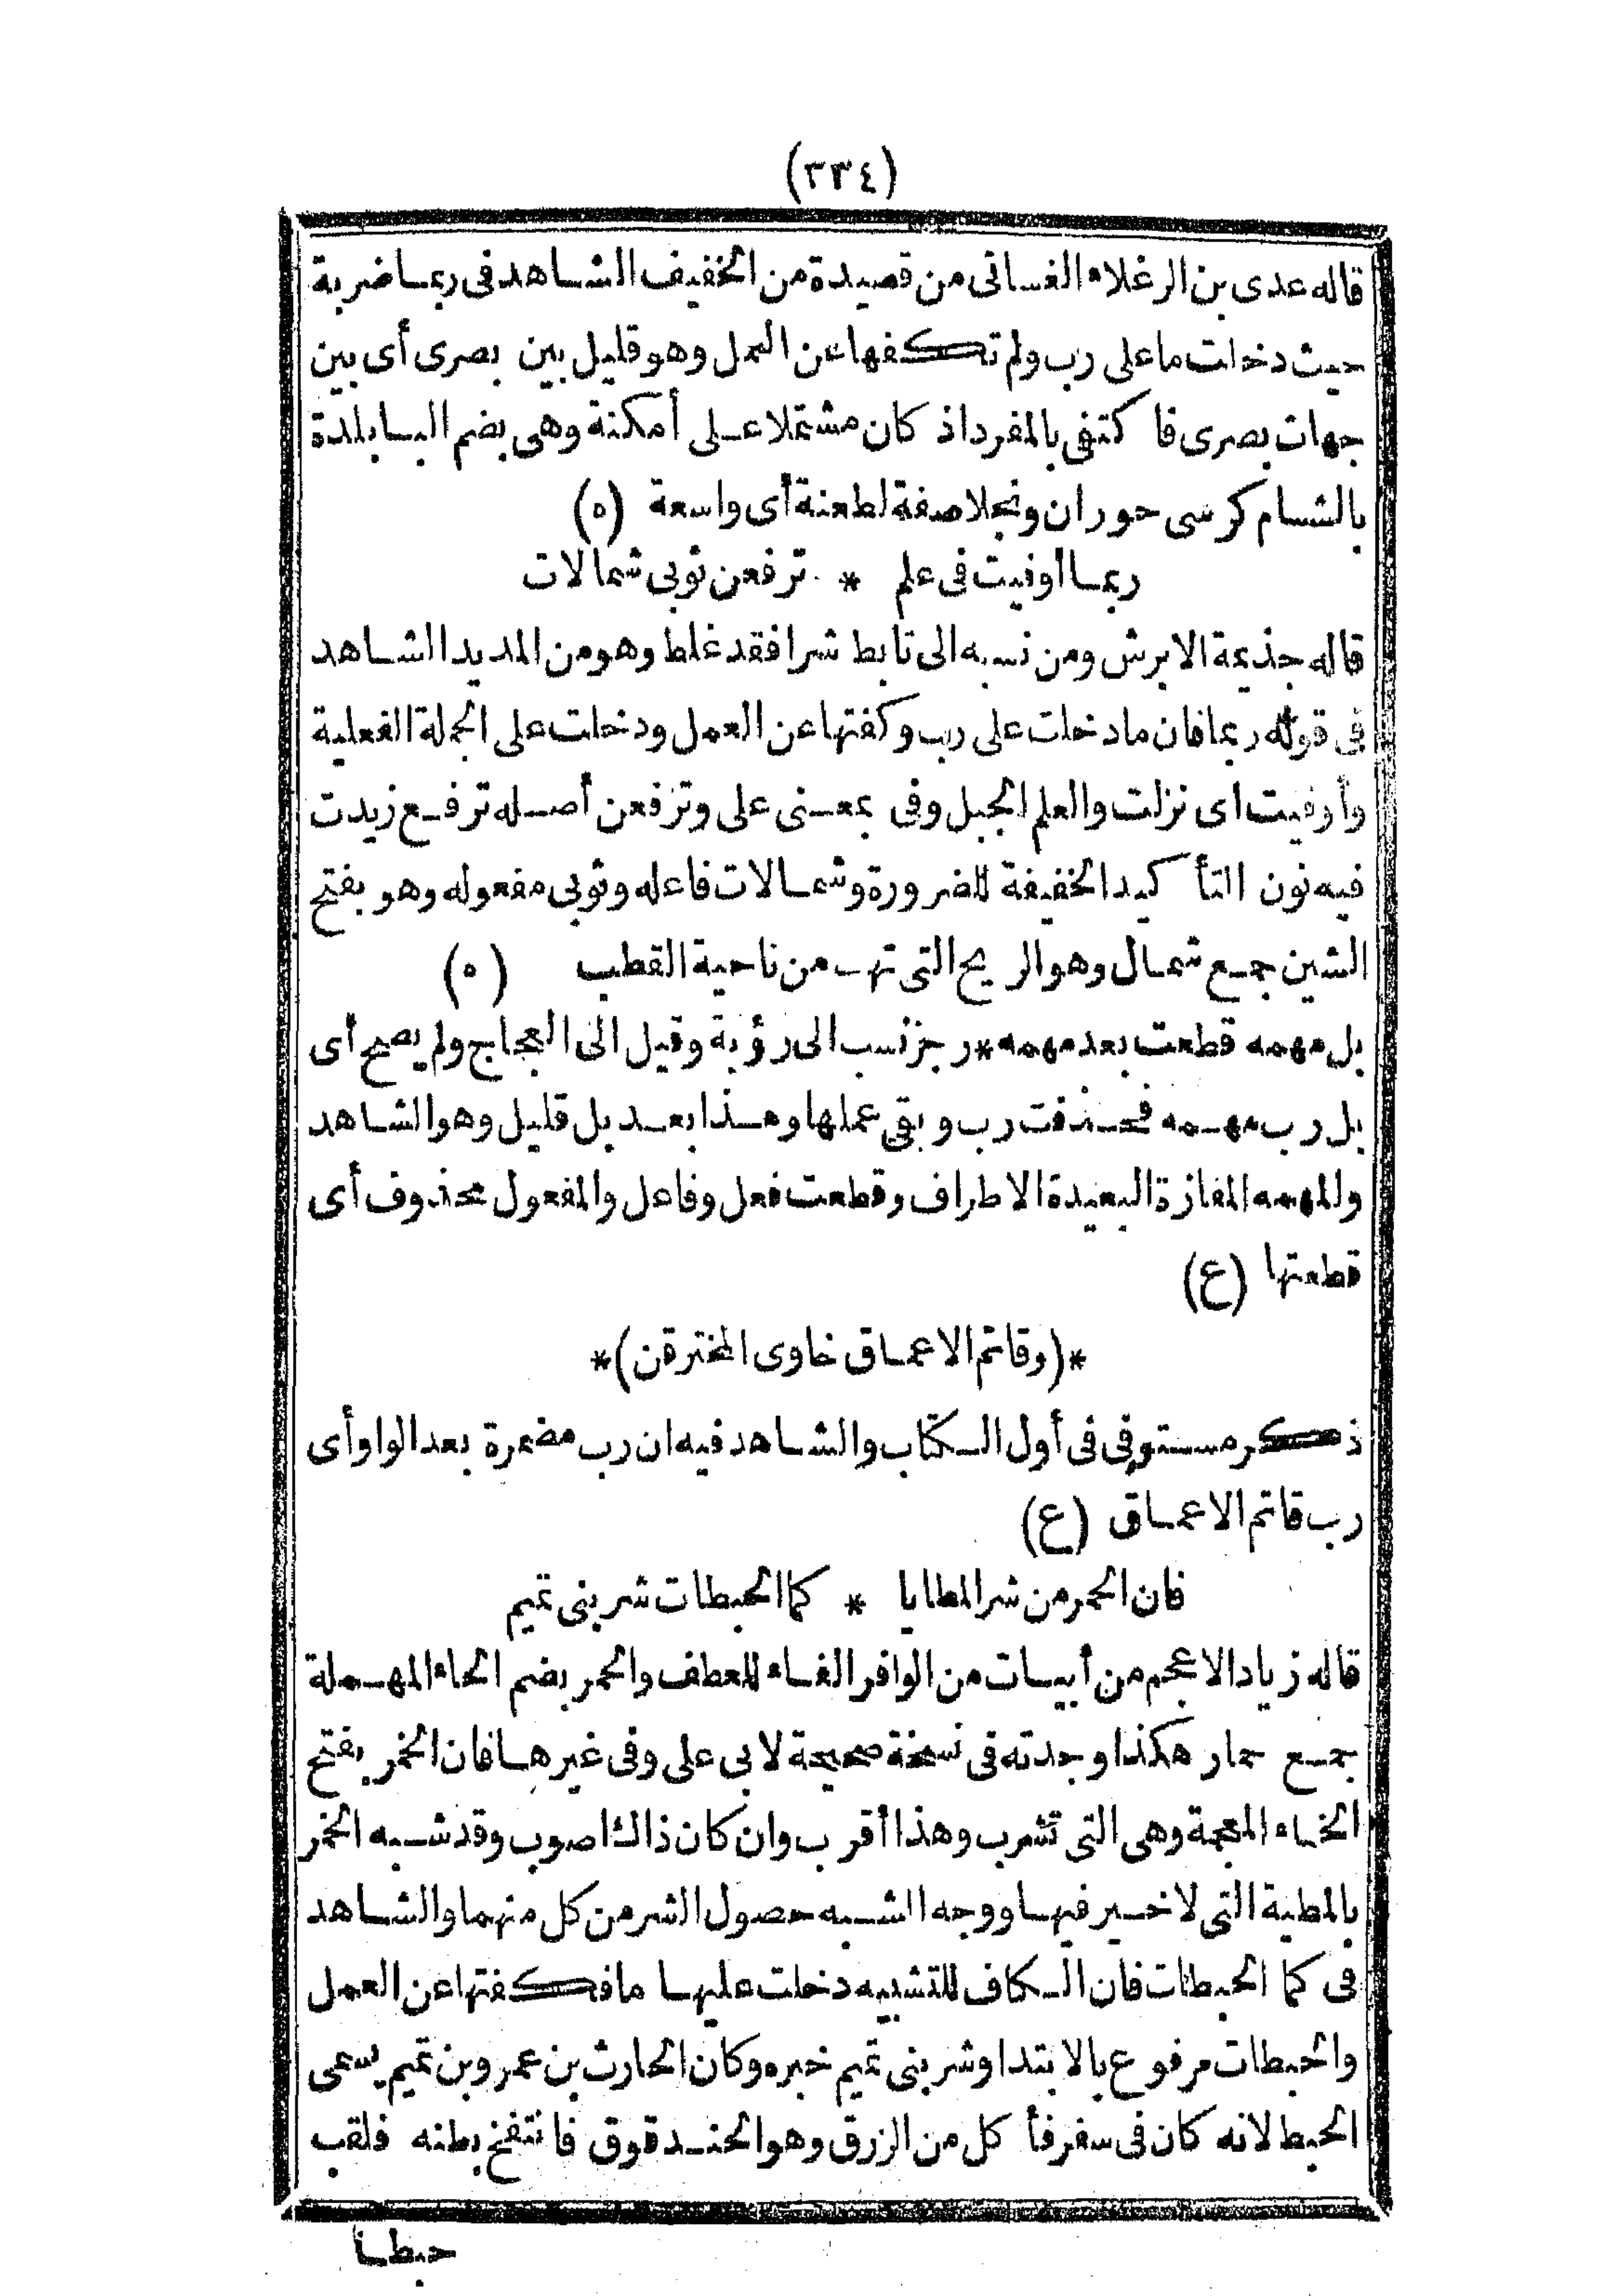 (٣٣٤)
قاله عدى بن الرغلاء الغسانى من قصيدة من الخفيف الشاهد فى ربما ضربة
حيث دخلت ما على رب ولم تكفها عن العمل وهو قليل بين بصرى أى بين
جهات بصرى فاكتفى بالمفرد اذ كان مشتملا على أمكنة وهى بضم البا بلدة
بالشام كرسى حوران ونجلا صفة لطعنة أى واسعة (ه)
ربما أوفيت فى علم * ترفعن ثوبى شمالات
قاله جذيمة الابرش ومن نسبه الى تابط شرا فقد غلط وهو من المديد الشاهد
فى قوله ربما فان ما دخلت على رب وكفتها عن العمل ودخلت على الجملة الفعلية
وأوفيت اى نزلت والعلم الجبل وفى بمعنى على وترفعن أصله ترفع زيدت
فيه نون التأكيد الخفيفة للضرورة وشمالات فاعله وثوبى مفعوله وهو بفتح
الشين جمع شمال وهو الريح التى تهب من ناحية القطب (ه)
بل مهمه قطعت بعد مهمه * رجز نسب الى رؤبة وقيل الى العجاج ولم يصح أى
بل رب مهمه فحذفت رب وبقى عملها وهذا بعد بل قليل وهو الشاهد
والمهمه المفازة البعيدة الاطراف وقطعت فعل وفاعل والمفعول محذوف أى
قطعتها (ع)
*(وقاتم الاعماق خاوى المخترقن)*
ذكر مستوفى فى أول الكتاب والشاهد فيه ان رب مضمرة بعد الواو أى
رب قاتم الاعماق (ع)
فان الحمر من شر المطايا * كما الحبطات شر بنى تميم
قاله زياد الاعجم من أبيات من الوافر الفاء للعطف والحمر بضم الحاء المهملة
جمع حمار هكذا وجدته فى نسخة صحيحة لابى على وفى غيرها فان الخمر بفتح
الخاء المعجمة وهى التى تشرب وهذا أقرب وان كان ذاك اصوب وقد شبه الخمر
بالمطية التى لا خير فيها ووجه الشبه حصول الشر من كل منهما والشاهد
فى كما الحبطات فان الكاف للتشبيه دخلت عليها ما فكفتها عن العمل
والحبطات مرفوع بالابتدا وشر بنى تميم خبره وكان الحارث بن عمرو بن تميم يسمى
الحبط لانه كان فى سفر فأكل من الزرق وهو الحندقوق فانتفخ بطنه فلقب
حبطا